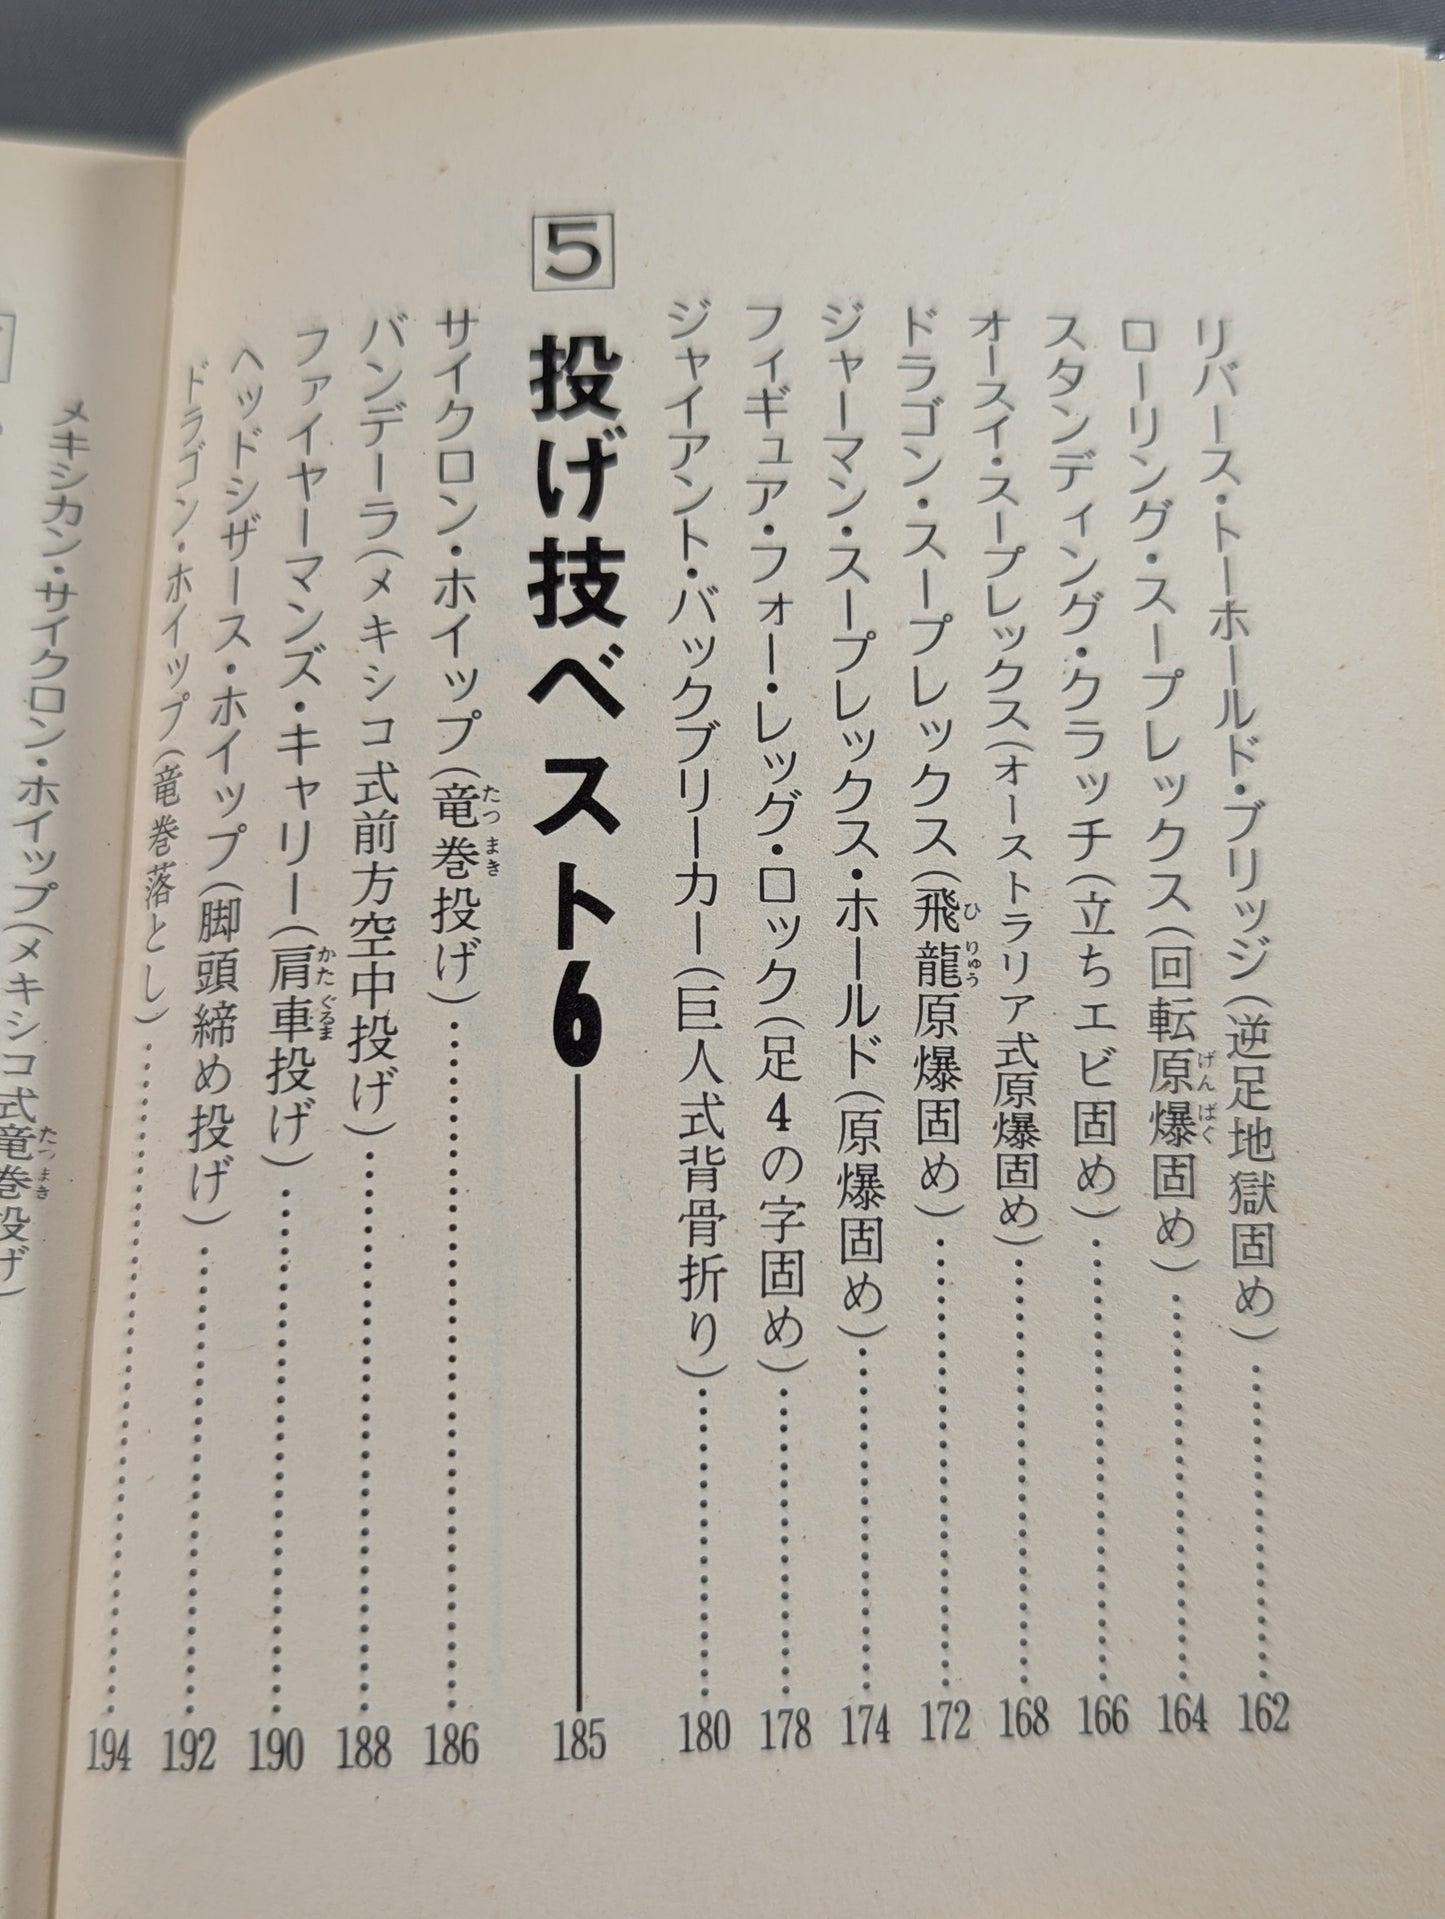 リバース・トーホールド・ブリッジ(逆足地獄固め)……162
ローリング・スープレックス(回転原爆固め)……164
スタンディング・クラッチ(立ちエビ固め)……166
オースイ・スープレックス(オーストラリア式原爆固め)……168
ドラゴン・スープレックス(飛龍原爆固め)……172
ジャーマン・スープレックス・ホールド(原爆固め)……174
フィギュア・フォー・レッグ・ロック(足4の字固め)……178
ジャイアント・バックブリーカー(巨人式背骨折り)……180
5 投げ技ベスト6 185
サイクロン・ホイップ(竜巻投げ)……186
バンデーラ(メキシコ式前方空中投げ)……188
ファイヤーマンズ・キャリー(肩車投げ)……190
ヘッドシザース・ホイップ(脚頭締め投げ)……192
ドラゴン・ホイップ(竜巻落とし)……194
メキシカン・サイクロン・ホイップ(メキシコ式竜巻投げ)